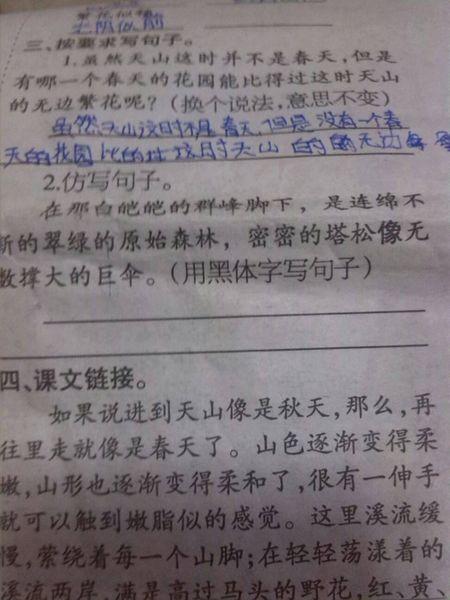 繁花似锦
光阴似箭
三、按要求写句子。
1.虽然天山这时并不是春天,但是
有哪一个春天的花园能比得过这时天山
的无边繁花呢?(换个说法,意思不变)
虽然天山这时不是春天,但是没有一个春
天的花园比的过这时天山的的无边
2.仿写句子。
在那白皑皑的群峰脚下,是连绵不
断的翠绿的原始森林,密密的塔松像无
数撑天的巨伞。(用黑体字写句子)
四、课文链接。
如果说进到天山像是秋天,那么,再
往里走就像是春天了。山色逐渐变得柔
嫩,山形也逐渐变得柔和了,很有一伸手
就可以触到嫩脂似的感觉。这里溪流缓
慢,萦绕着每一个山脚;在轻轻荡漾着的
溪流两岸,满是高过马头的野花,红、黄、